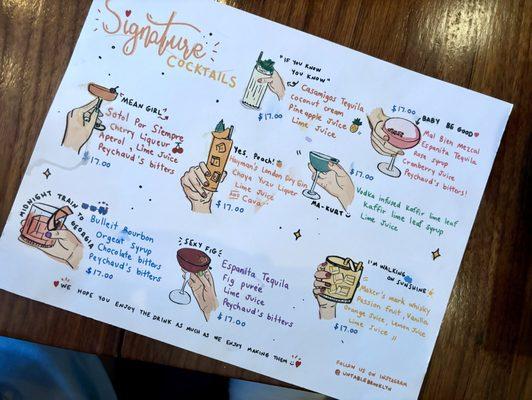 Signature
COCKTAILS
"MEAN GIRL"
Sotol Por Siempre
Cherry Liqueur
Aperol, Lime Juice
Peychaud's bitters
$17.00
"IF YOU KNOW
YOU KNOW"
Casamigos Tequila
Coconut cream
Pineapple Juice
Lime Juice
$17.00
$17.00
BABY BE GOOD
Mal Bien Mezcal
Espanita Tequila
Rose syrup
Cranberry Juice
Peychaud's bitters!
Yes, Peach!
Hayman's London Dry Gin
Choya Yuzu Liquer
Lime Juice
AND Cava
$17.00
MA-KURT
Vodka infused kaffir lime leaf
kaffir lime leaf syrup
Lime Juice
$17.00
MIDNIGHT TRAIN TO
GEORGIA
Bulleit Bourbon
Orgeat Syrup
Chocolate bitters
Peychaud's bitters
$17.00
"SEXY FIG"
Espanita Tequila
Fig puree
Lime Juice
Peychaud's bitters
$17.00
I'M WALKING
ON SUNSHINE
"Maker's mark whisky
Passion fruit, Vanilla
Orange Juice, Lemon Juice
Lime Juice"
$17.00
WE HOPE YOU ENJOY THE DRINK AS MUCH AS WE ENJOY MAKING THEM
FOLLOW US ON INSTAGRAM
@UNTABLEBROOKLYN